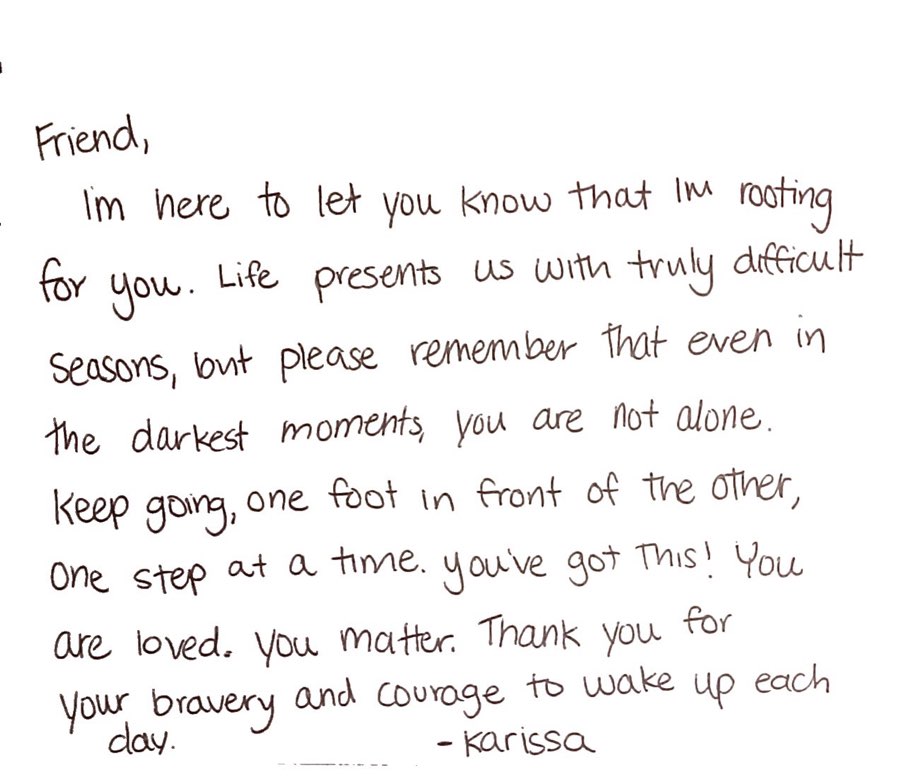 Friend,
I'm here to let you know that Im rooting
for you. Life presents us with truly difficult
seasons, but please remember that even in
the darkest moments, you are not alone.
Keep going, one foot in front of the other,
one step at a time. you've got this! You
are loved. you matter. Thank you for
your bravery and courage to wake up each
day. - Karissa